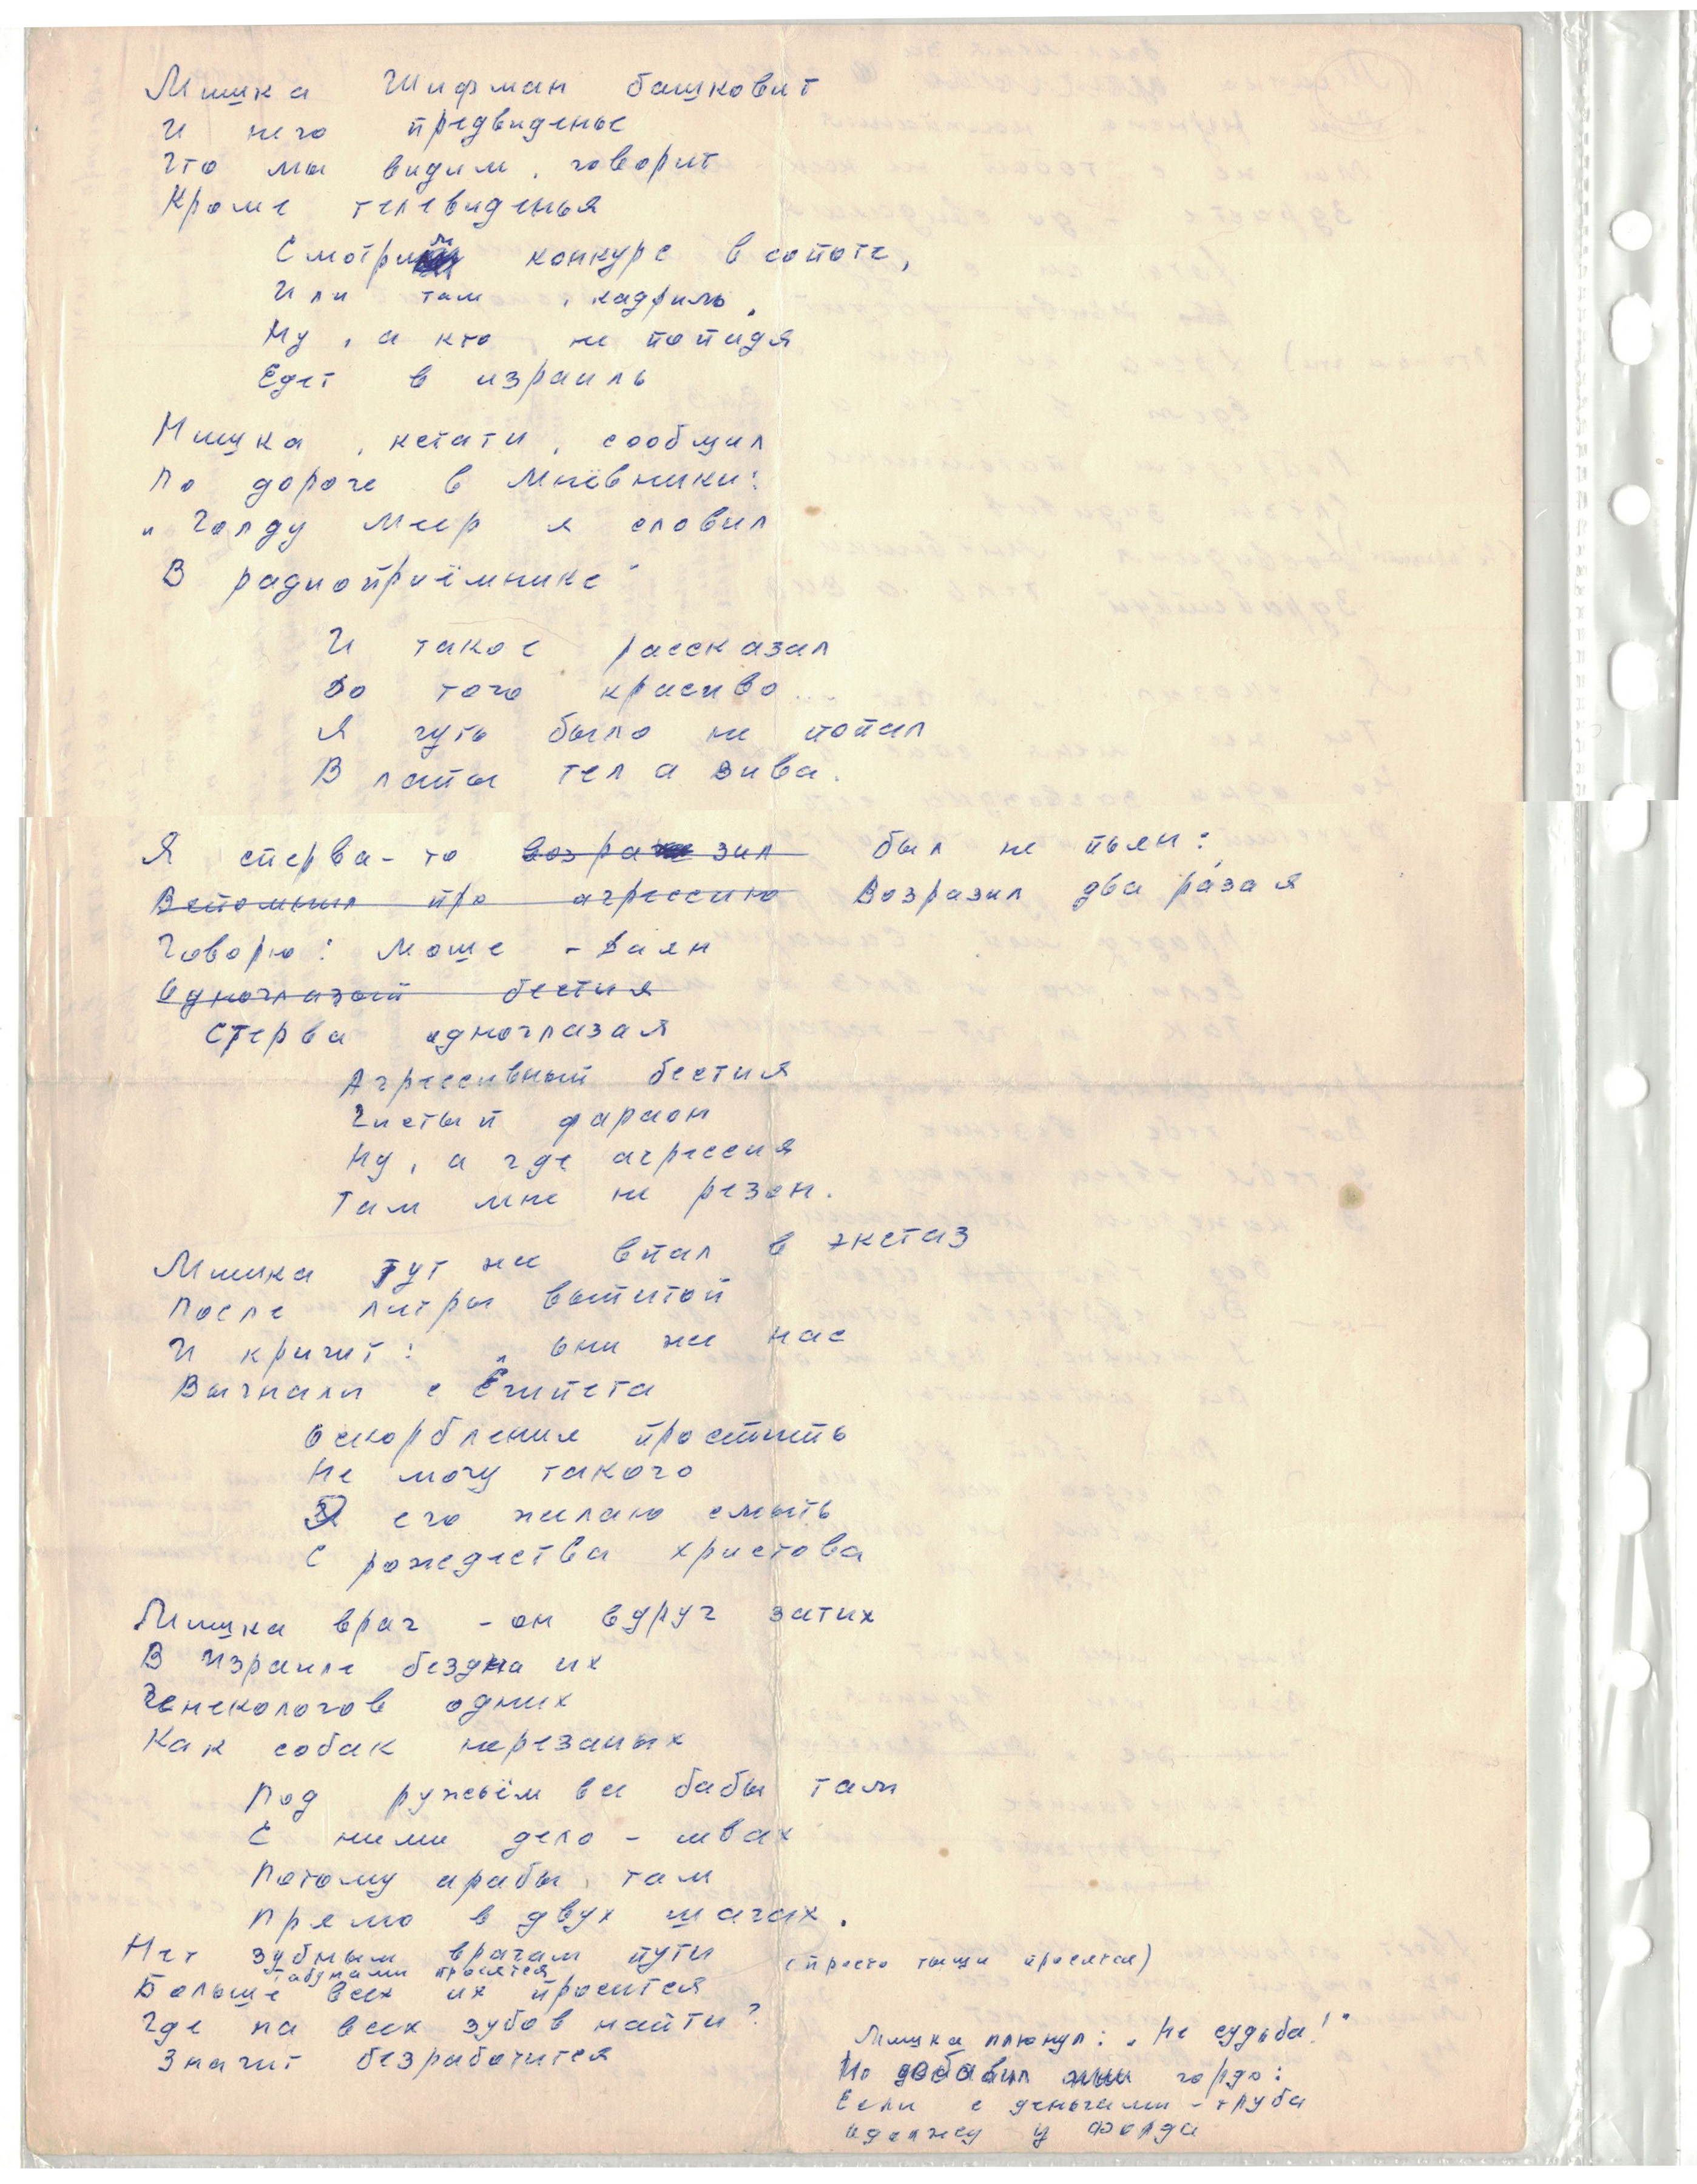 Мишка Шифман башковит
И него предвиденье
Что мы видим, говорит
Кроме телевиденья
Смотрим конкурс в сопоте,
Или там, кадриль,
Ну, а кто, не попадя
Едет в израиль
Мишка, кстати, сообщил
По дороге в Мнёвники:
„Голду Меер я словил
В радиоприёмнике"
И такое рассказал
До того красиво...
Я чуть было не попал
В лапы тел а вива.
Я сперва-то возразил был не пьян:
Вспомнил про агрессию Возразил два раза я
Говорю: Моше - Даян
Одноглазый бестия
Стерва одноглазая
Агрессивный бестия
Чистый фараон
Ну, а где агрессия
Там мне не резон.
Мишка тут же впал в экстаз
После литры выпитой
И кричит: „они же нас
Выгнали с Египета
Оскорбления простить
Не могу такого
Я его желаю смыть
С рождества христова
Мишка врач - он вдруг затих
В Израиле бездна их
Генекологов одних
Как собак нерезаных
Под ружьём все бабы там
С ними дело - швах
Потому арабы, там
Прямо в двух шагах.
Нет зубным врачам пути (просто тыщи просятся)
табунами просятся
Больше всех их просится
Где на всех зубов найти?
Значит безработится
Мишка плюнул: „Не судьба!"
Но добавил гордо:
Если с деньгами - труба
одолжу у форда